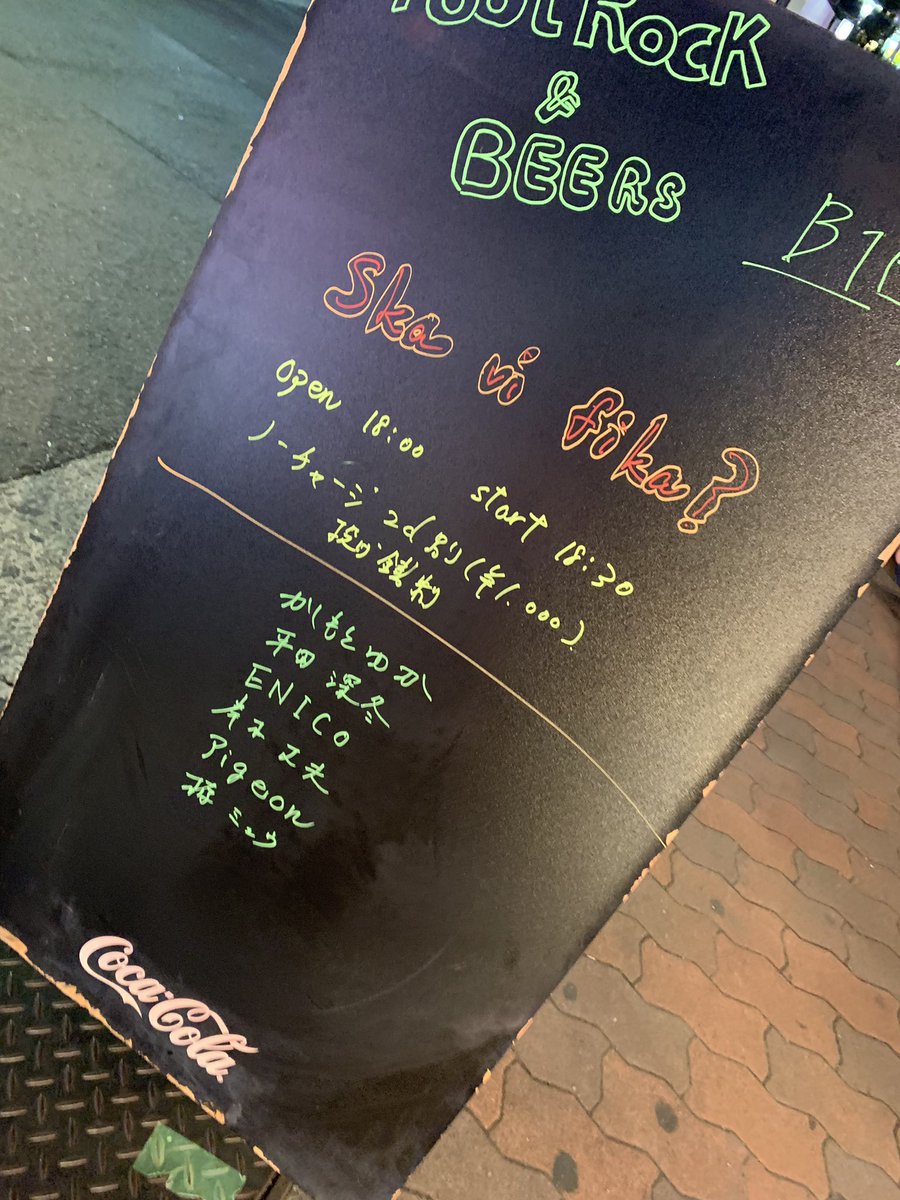 ROCK
&
BEERS
B1
Ska vi fika?
open 18:00 start 18:30
ノーチャージ 2d別(¥1.000)
投げ銭制
かもとゆか
平田 深冬
ENICO
丈夫
Pigeon
ミュウ
Coca-Cola